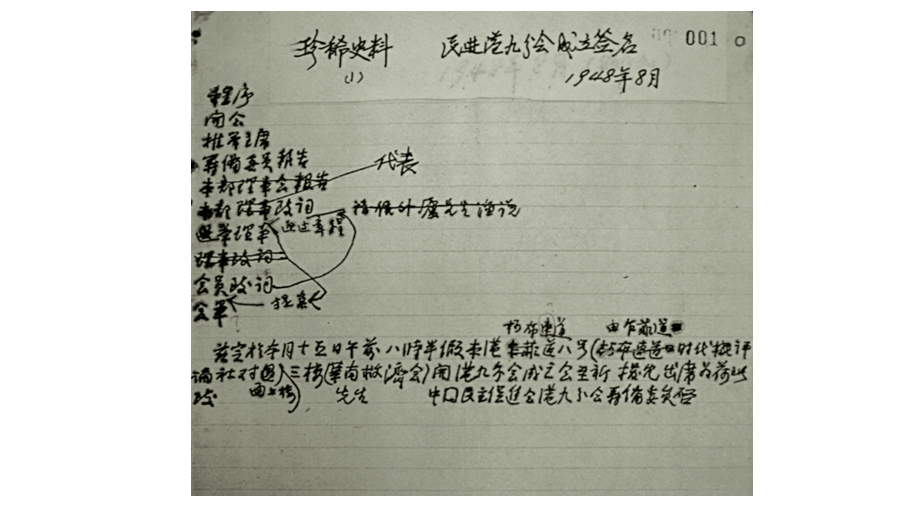 珍稀史料 民进港九分会成立签名 001
(1) 1948年8月
程序
开会
推荐主席
筹备委员报告
本部理事会报告 代表
本部理事致词
选举理事 通过章程
理事致词
会员致词
会毕 提案
由乍菲道
兹定于本月十五日午前八時半假本港 菲道八号( 时代批评
社对面)三楼(華南救濟会)開港九分会成立会至祈 撥冗出席为荷此
致 先生 中国民主促進会港九分会筹備委员会